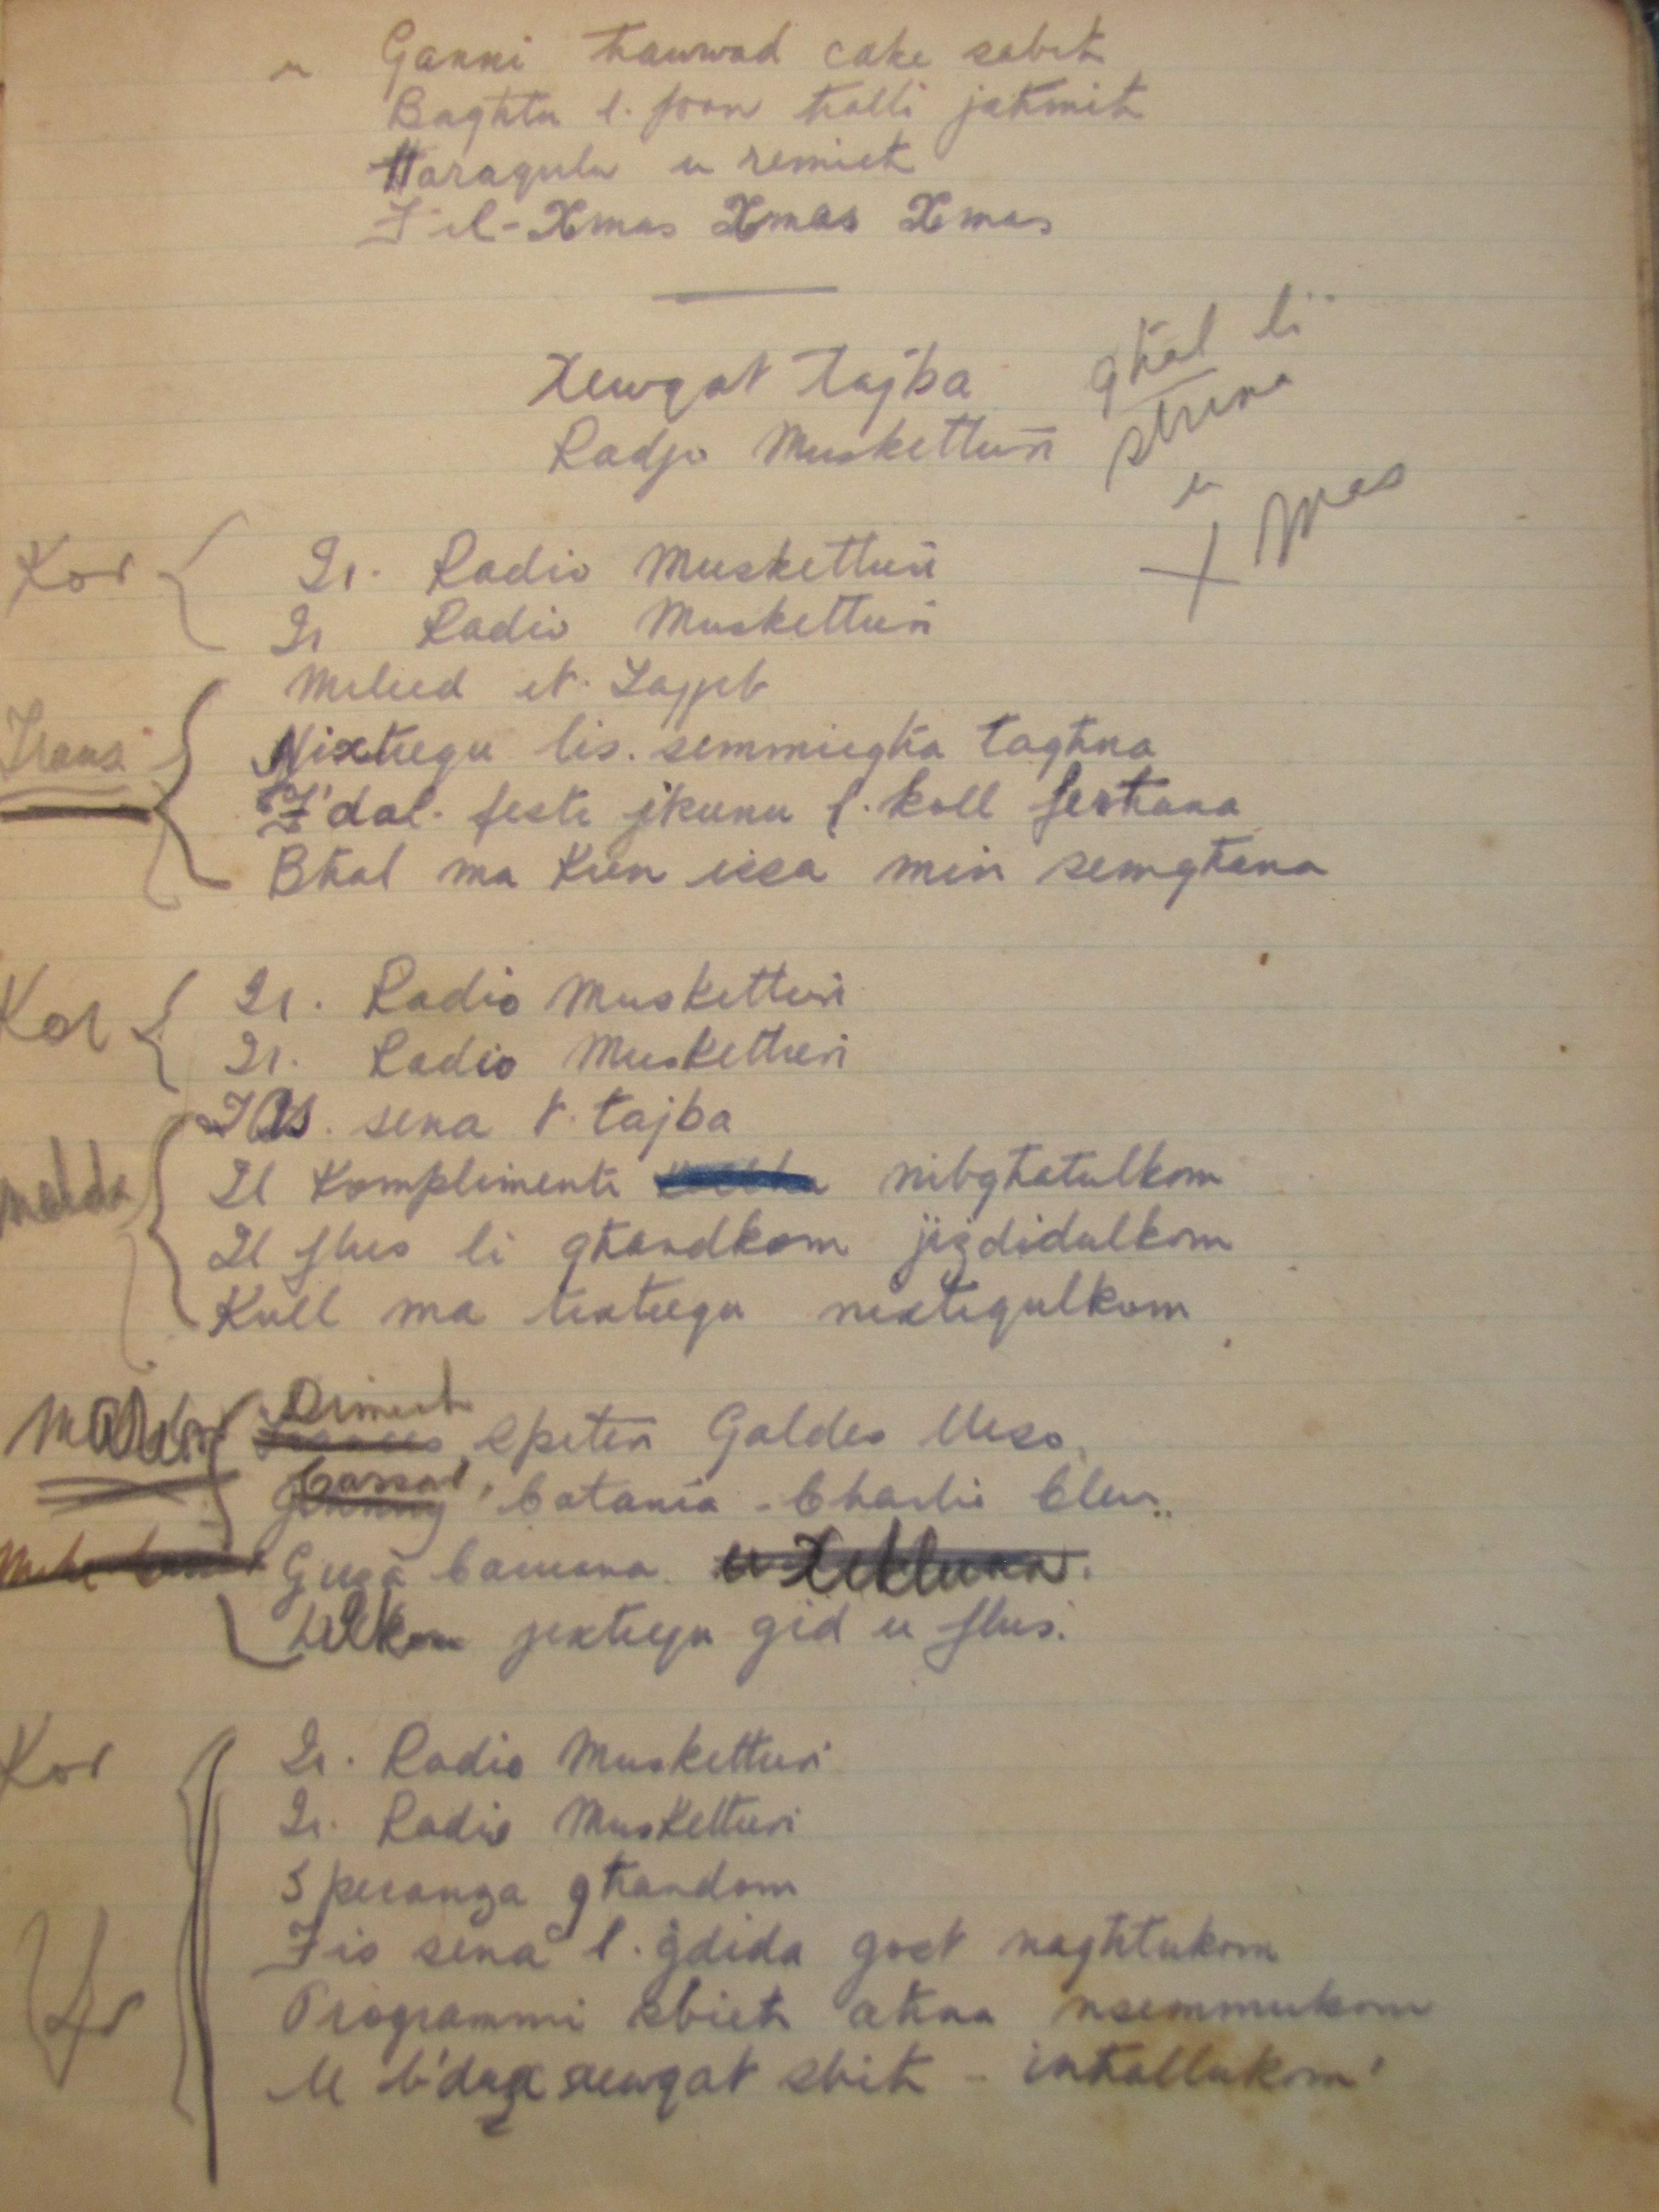 Ganni hawwad cake sabih
u Baghtu l. forn halli jahmih
Haraqulu u remieh
Fil-Xmas Xmas Xmas
Xewqat Tajba
ghal li
strina
u
X mas
Radjo Musketturi
Kor
Ir. Radio Musketturi
Ir Radio Musketturi
Milied it. Tajjeb
Nixtiequ lis. semmiegha taghna
F'dal. festi jkunu l. koll ferhana
Bhal ma kien issa min semghana
Kor
Ir. Radio Musketturi
Ir. Radio Musketturi
Is. sena t. tajba
Il komplimenti nibghatulkom
Il flus li ghandkom jizdidulkom
Kull ma tixtiequ nixtiqulkom
Spiteri Galdes
Cassar, Catania - Charlie Clews
Guza Caruana
Lilkom jixtiequ gid u flus.
Kor
Ir. Radio Musketturi
Ir. Radio Musketturi
Speranza ghandom
Fis sena l. gdida gost naghtukom
Programmi sbieh ahna nsemmukom
U b'dax xewqat sbih - inhallukom